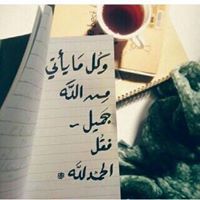 وكل ما يأتي
من الله
جميل -
فقل
الحمد لله